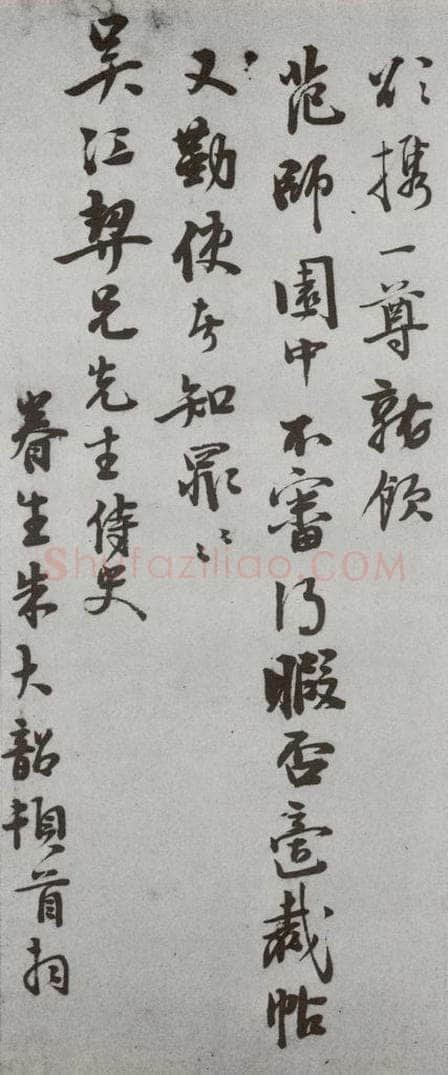 欲携一尊就飲
范師園中不審得暇否適裁帖
又勤使者知罪〻
吳江契兄先生侍史
眷生朱大韶頓首拜
Shufaziliao.COM